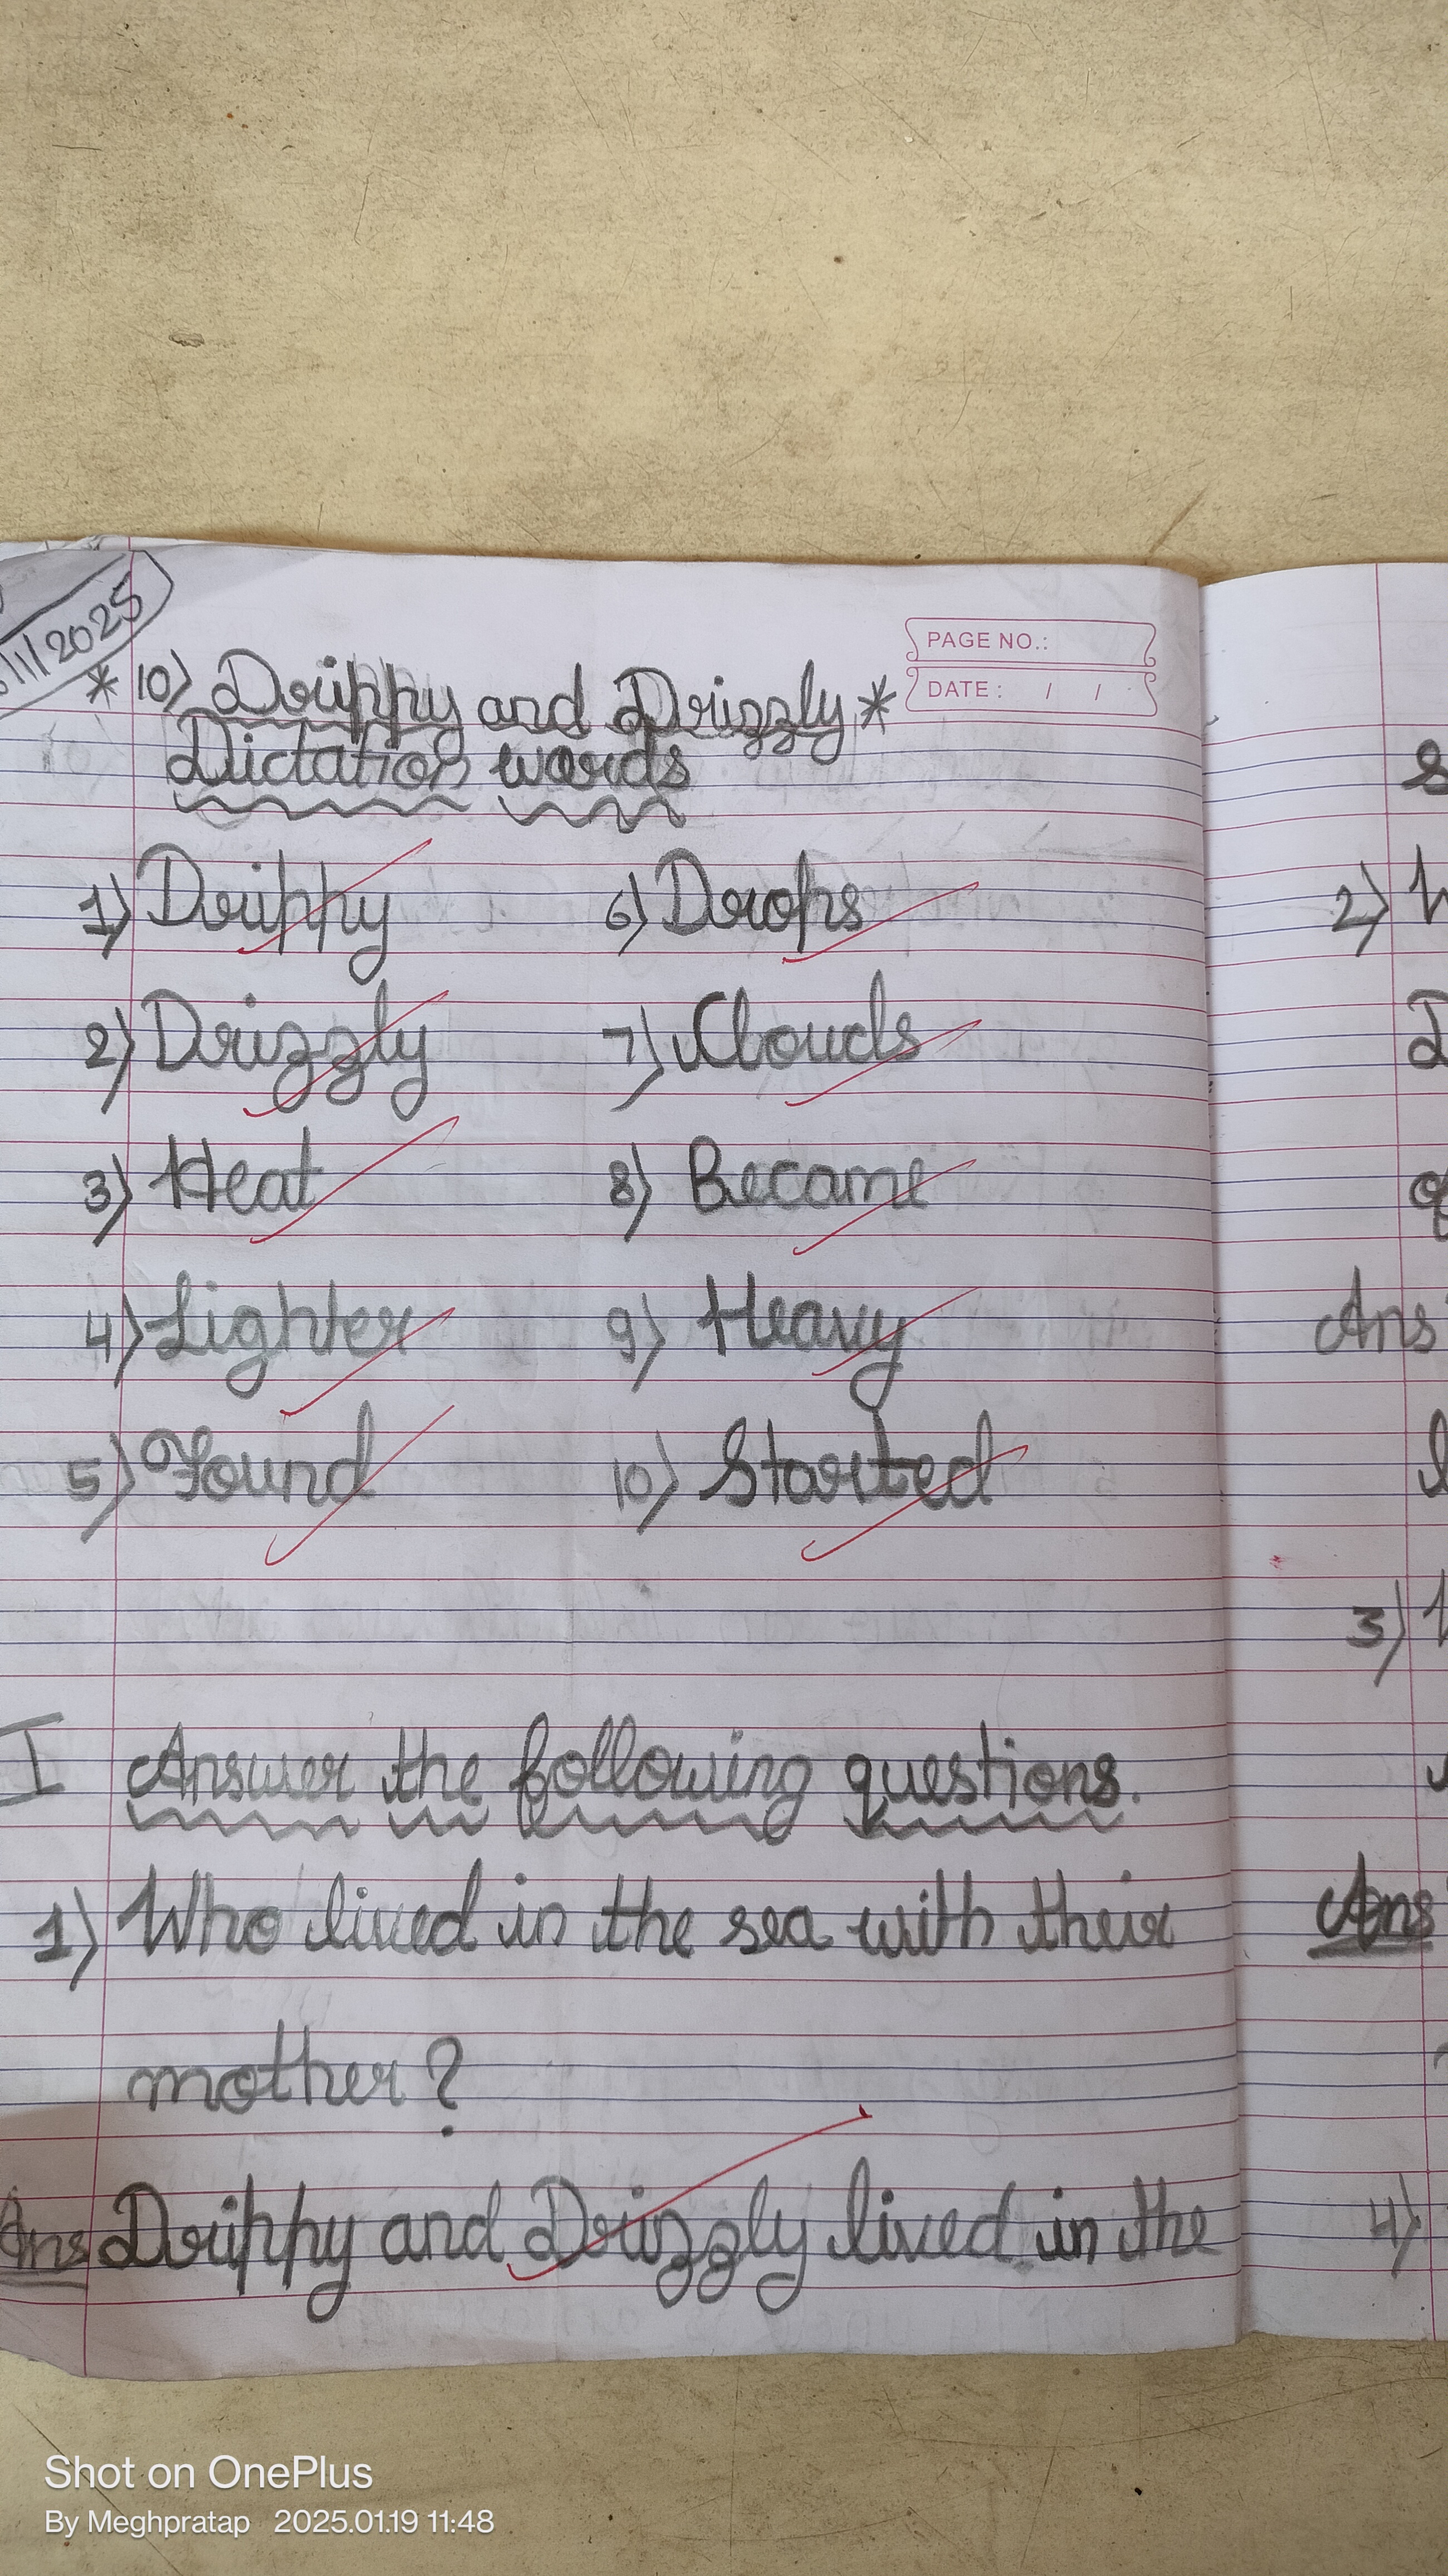 /1/2025
PAGE NO.:
DATE: / /
*10) Drippy and Drizzly*
Dictation words
1) Drippy 6) Drops
2) Drizzly 7) Clouds
3) Heat 8) Became
4) Lighter 9) Heavy
5) Found 10) Started
I Answer the following questions.
1) Who lived in the sea with their
mother?
Ans Drippy and Drizzly lived in the
2)
Ans
3)
Ans
4)
Shot on OnePlus
By Meghpratap 2025.01.19 11:48